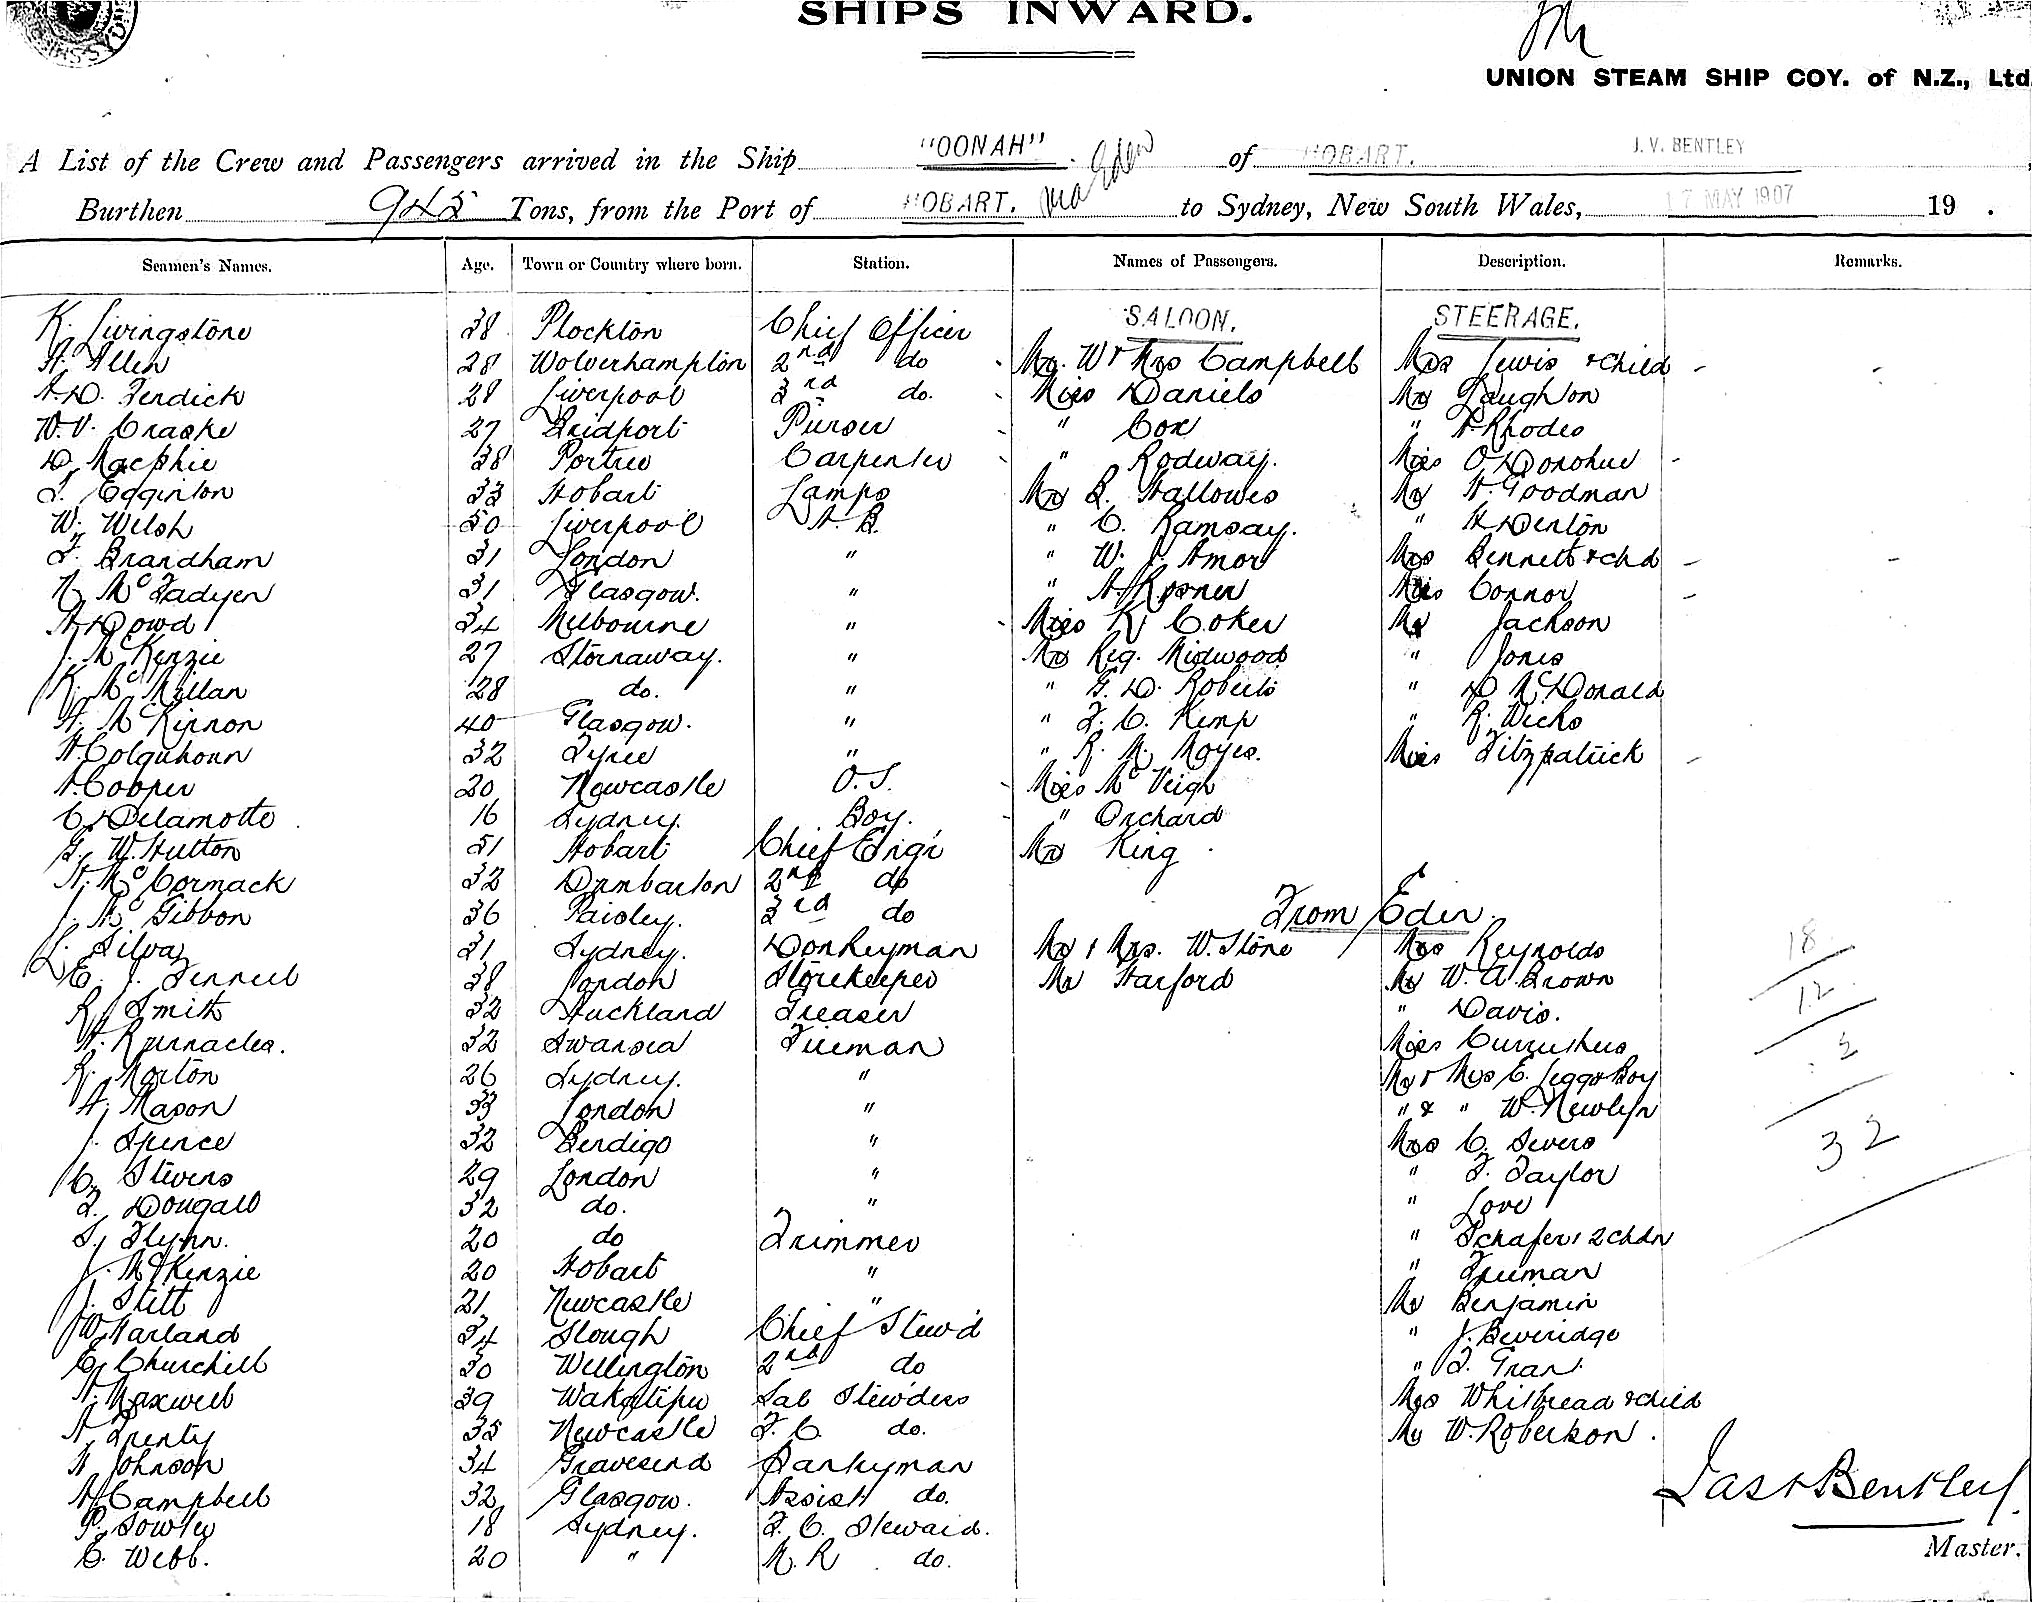 SHIPS INWARD.
UNION STEAM SHIP COY. of N.Z., Ltd
A List of the Crew and Passengers arrived in the Ship "OONAH" via Eden of HOBART. J. V. BENTLEY
Burthen 945 Tons, from the Port of HOBART. via to Sydney, New South Wales, 17 MAY 1907 19 .
Seamen's Names. Age. Town or Country where born. Station. Names of Passengers. Description. Remarks.
SALOON. STEERAGE.
K. Livingstone 38 Plockton Chief Officer
A. Allen 28 Wolverhampton 2nd do Mr. W & Mrs Campbell Mrs Lewis & child
A. D. Fendick 28 Liverpool 3rd do. Miss Daniels Mr Laughton
W. V. Craske 27 Bridport Purser " Cox " A. Rhodes
D. Macphie 38 Portree Carpenter " Rodway. Miss O'Donohue
T. Egginton 33 Hobart Lamps Mr B. Hallowes Mr H. Goodman
W. Welsh 50 Liverpool A. B. " C. Ramsay. " H Denton
F. Brandham 31 London " " W. J. Amor Mrs Bennett & chd
N. McFadyen 31 Glasgow. " " A. Rosner Miss Connor
A Dowd 34 Melbourne " Miss K Coker Mr Jackson
J. McKenzie 27 Stornaway. " Mr Reg. Midwood " Jones
K. McMillan 28 do. " " G. D. Roberts " D McDonald
A. McKinnon 40 Glasgow. " " F. C. Kemp " R. Wicks
A. Colquhoun 32 Tyree " " R. M. Moyes. Miss Fitzpatrick
A. Cooper 20 Newcastle O. S. Miss McVeigh
C. Delamotte 16 Sydney. Boy. " Orchard
G. W. Hutton 51 Hobart Chief Engr Mr King
A. McCormack 32 Dumbarton 2nd do
J. McGibbon 36 Paisley. 3rd do From Eden.
L. Silva 21 Sydney. Donkeyman Mr & Mrs. W. Stone Mrs Reynolds 18
C. J. Fennell 38 London Storekeeper Mr Harford Mr W. A. Brown
R. Smith 32 Auckland Greaser " Davis. 12
A. Runnacles. 32 Swansea Fireman Miss
R. Morton 26 Sydney. " Mr & Mrs C. Legg & Boy
A. Mason 33 London " " & " W. Newlyn
J. Spence 32 Bendigo " Mrs C. Severs 32
C. Stevens 29 London " " F. Taylor
F. Dougall 32 do. " " Love
S. Flynn. 20 do Trimmer " Schafer & 2 chdn
J. McKenzie 20 Hobart " " Freeman
J. Stitt 21 Newcastle " Mr Benjamin
W. Harland 34 Slough Chief Stewd " J. Beveridge
C. Churchill 30 Wellington 2nd do " F. Gran.
A. Maxwell 39 Wakatipu Sal Stewdess Mrs Whitbread & child
A. Prenty 35 Newcastle F. C. do. Mr W. Robertson.
H Johnson 34 Gravesend Pantryman
A Campbell 32 Glasgow. Assist do. Jas V Bentley
P. Sowley 18 Sydney. F. C. Steward.
C. Webb. 20 " M. R. do. Master.